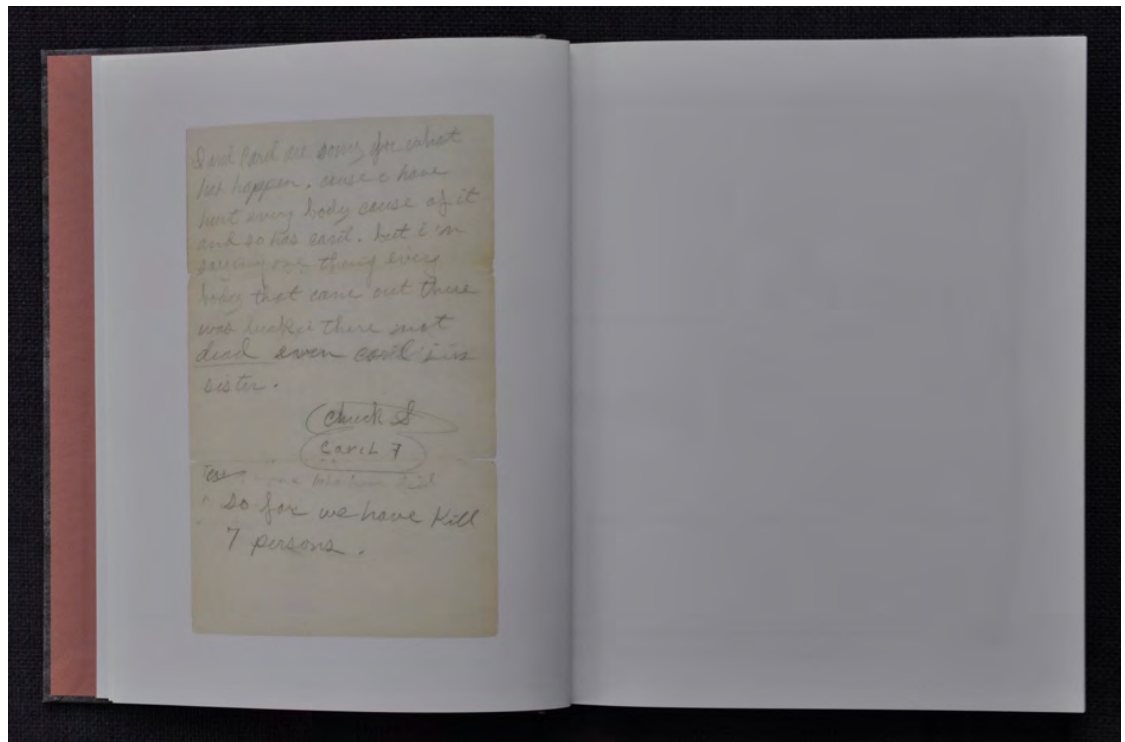 I and Caril are sorry for what
has happen. cause i have
hurt every body cause of it
and so has caril. but i'm
saying one thing every
body that came out there
was luckie there not
dead even caril's
sister.
Chuck S
Caril F
so far we have kill
7 persons.